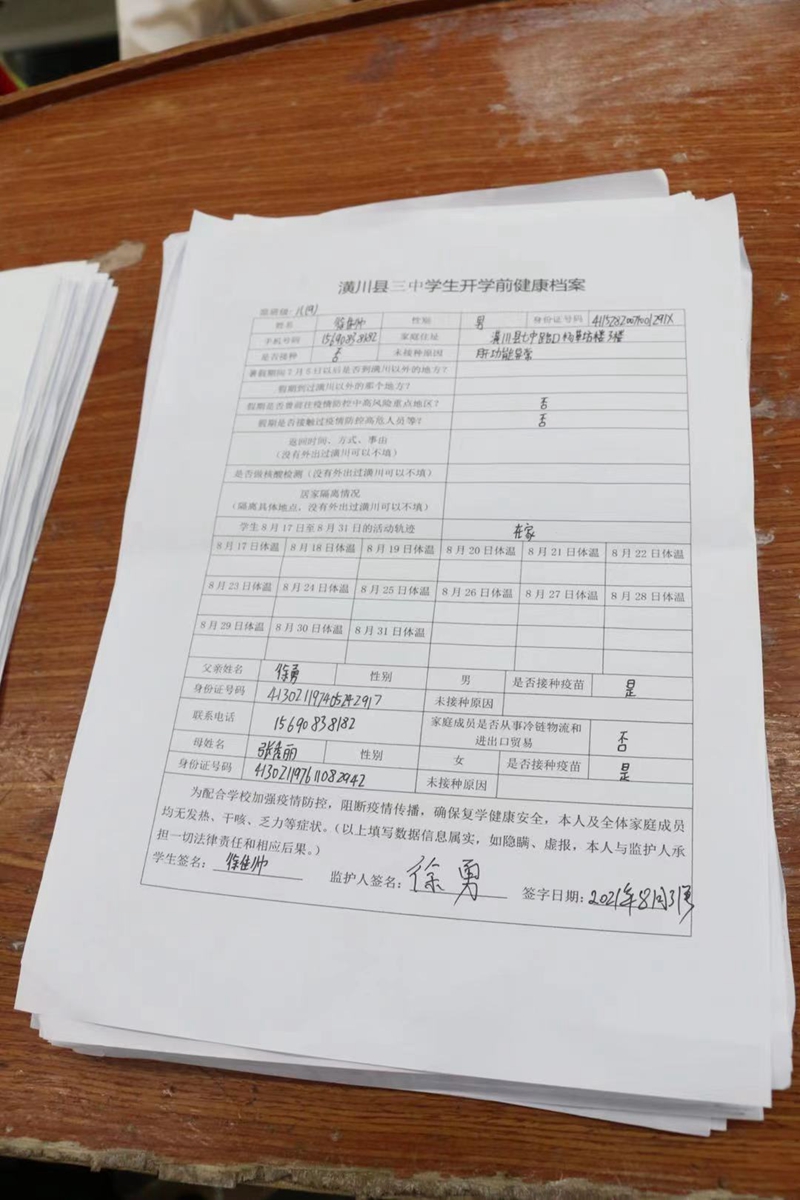 潢川县三中学生开学前健康档案
班级: 八(四)
姓名 徐佳帅 性别 男 身份证号码
手机号码 家庭住址 潢川县七中路口 楼3楼
是否接种 否 未接种原因 肝功能异常
暑假期间7月5日以后是否到潢川以外的地方?
假期到过潢川以外的那个地方?
假期是否曾前往疫情防控中高风险重点地区? 否
假期是否接触过疫情防控高危人员等? 否
返回时间、方式、事由
(没有外出过潢川可以不填)
是否做核酸检测(没有外出过潢川可以不填)
居家隔离情况
(隔离具体地点,没有外出过潢川可以不填)
学生8月17日至8月31日的活动轨迹 在家
8月17日体温 8月18日体温 8月19日体温 8月20日体温 8月21日体温 8月22日体温
8月23日体温 8月24日体温 8月25日体温 8月26日体温 8月27日体温 8月28日体温
8月29日体温 8月30日体温 8月31日体温
父亲姓名 徐勇 性别 男 是否接种疫苗 是
身份证号码 413021197405242917 未接种原因
联系电话 15690838182 家庭成员是否从事冷链物流和
进出口贸易 否
母姓名 张秀丽 性别 女 是否接种疫苗 是
身份证号码 413021197611082942 未接种原因
为配合学校加强疫情防控,阻断疫情传播,确保复学健康安全,本人及全体家庭成员
均无发热、干咳、乏力等症状。(以上填写数据信息属实,如隐瞒、虚报,本人与监护人承
担一切法律责任和相应后果。)
学生签名: 徐佳帅 监护人签名: 徐勇 签字日期: 2021年8月31号